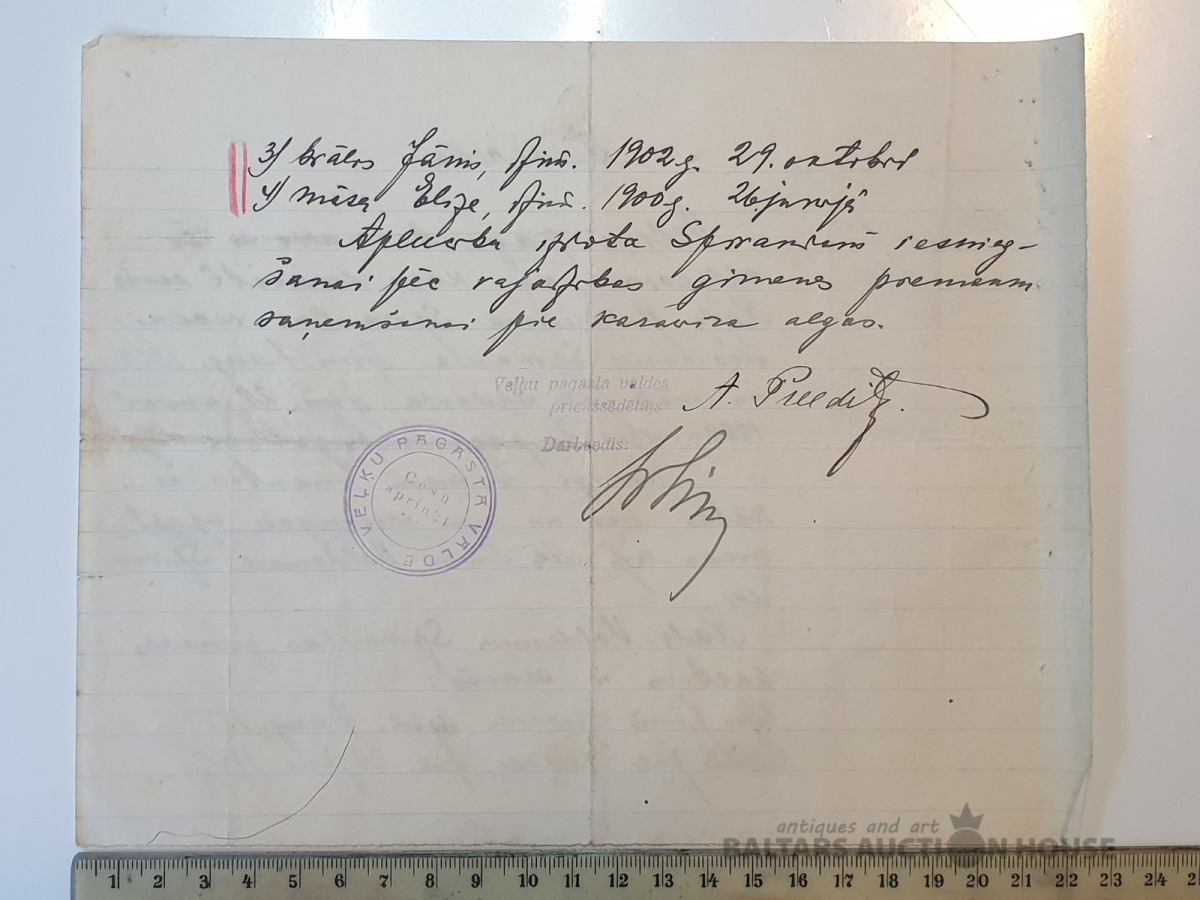 3) brālis Jānis, dzim. 1902 g. 29. oktobrī
4) māsa Elize, dzim. 1900 g. 26. junijā
Apliecība izdota iesnieg-
šanai pēc vajadzības ģimenes
saņemšanai pie karavīra algas.
Veļķu pagasta valdes
priekšsēdētājs A. Preedīt
Darbvedis:
VEĻĶU PAGASTA VALDE
Cēsu
apriņķī
antiques and art
BALTARS AUCTION HOUSE
1 2 3 4 5 6 7 8 9 10 11 12 13 14 15 16 17 18 19 20 21 22 23 24